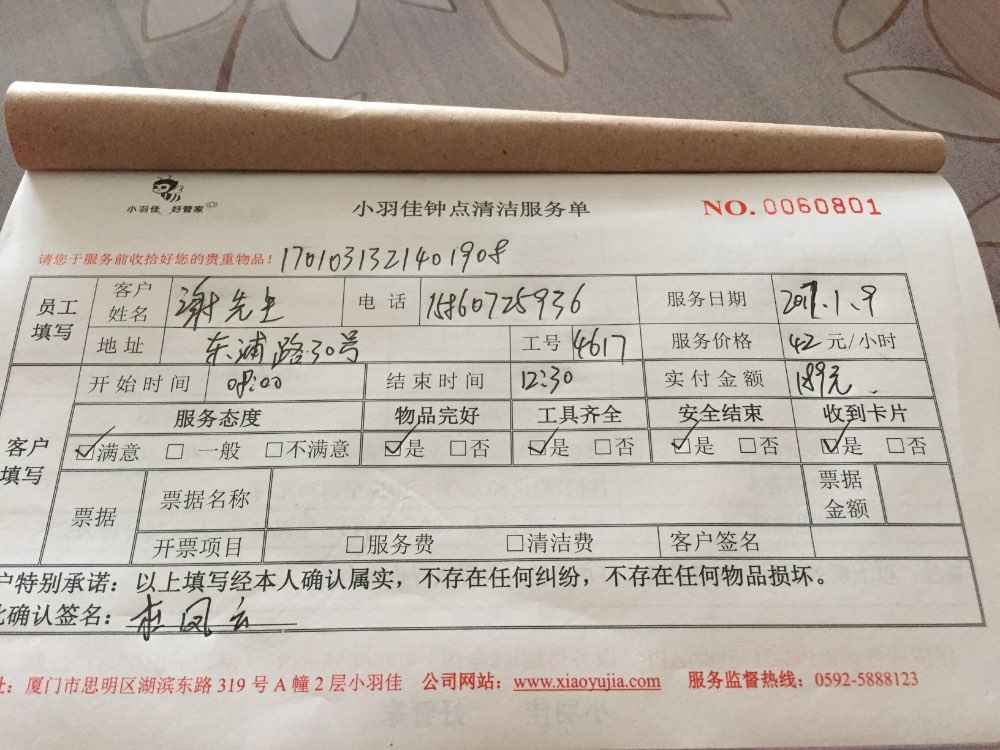 小羽佳 好管家
小羽佳钟点清洁服务单 NO.0060801
请您于服务前收拾好您的贵重物品！ 1701031321401908
员工填写 客户姓名 谢先生 电话 15860725936 服务日期 2017.1.9
地址 东浦路30号 工号 4617 服务价格 42元/小时
客户填写 开始时间 08:00 结束时间 12:30 实付金额 189元
服务态度 物品完好 工具齐全 安全结束 收到卡片
☑满意 □一般 □不满意 ☑是 □否 ☑是 □否 ☑是 □否 ☑是 □否
票据 票据名称 票据金额
开票项目 □服务费 □清洁费 客户签名
户特别承诺：以上填写经本人确认属实，不存在任何纠纷，不存在任何物品损坏。
比确认签名：杜凤云
址：厦门市思明区湖滨东路 319 号 A 幢 2 层小羽佳 公司网站：www.xiaoyujia.com 服务监督热线：0592-5888123